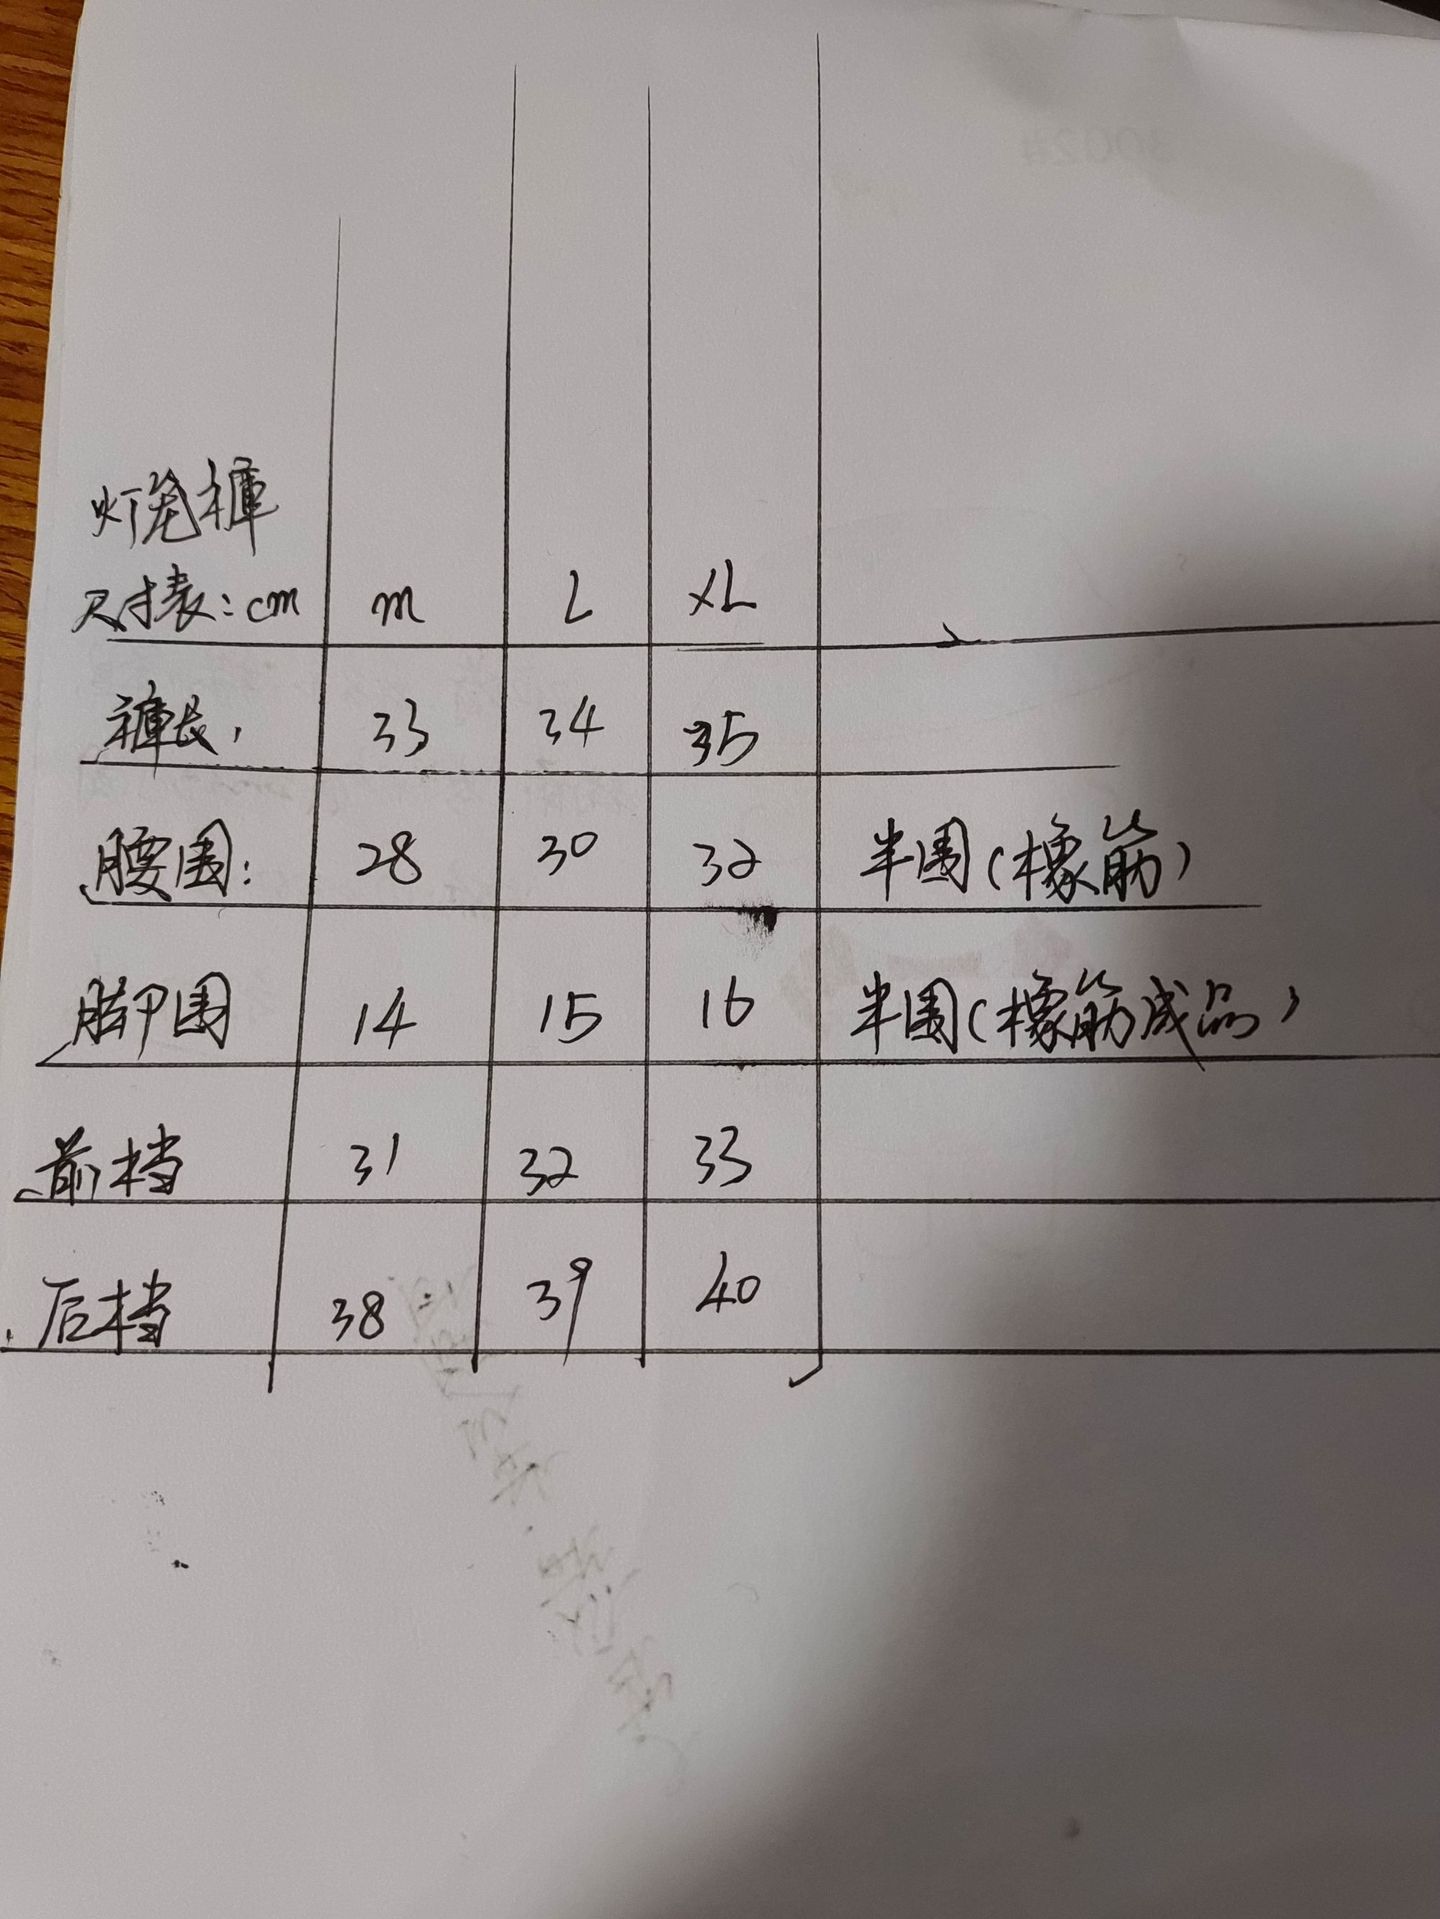 灯笼褲
尺寸表:cm m L XL
褲长, 33 34 35
腰围: 28 30 32 半围(橡筋)
脚围 14 15 16 半围(橡筋成品)
前档 31 32 33
后档 38 39 40